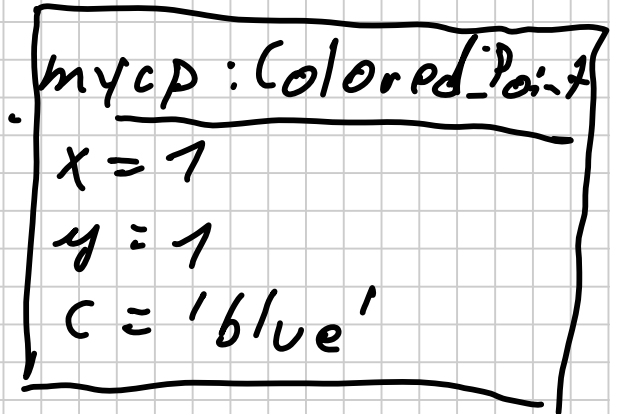 mycp : Colored_Point
x = 1
y = 1
c = 'blue'